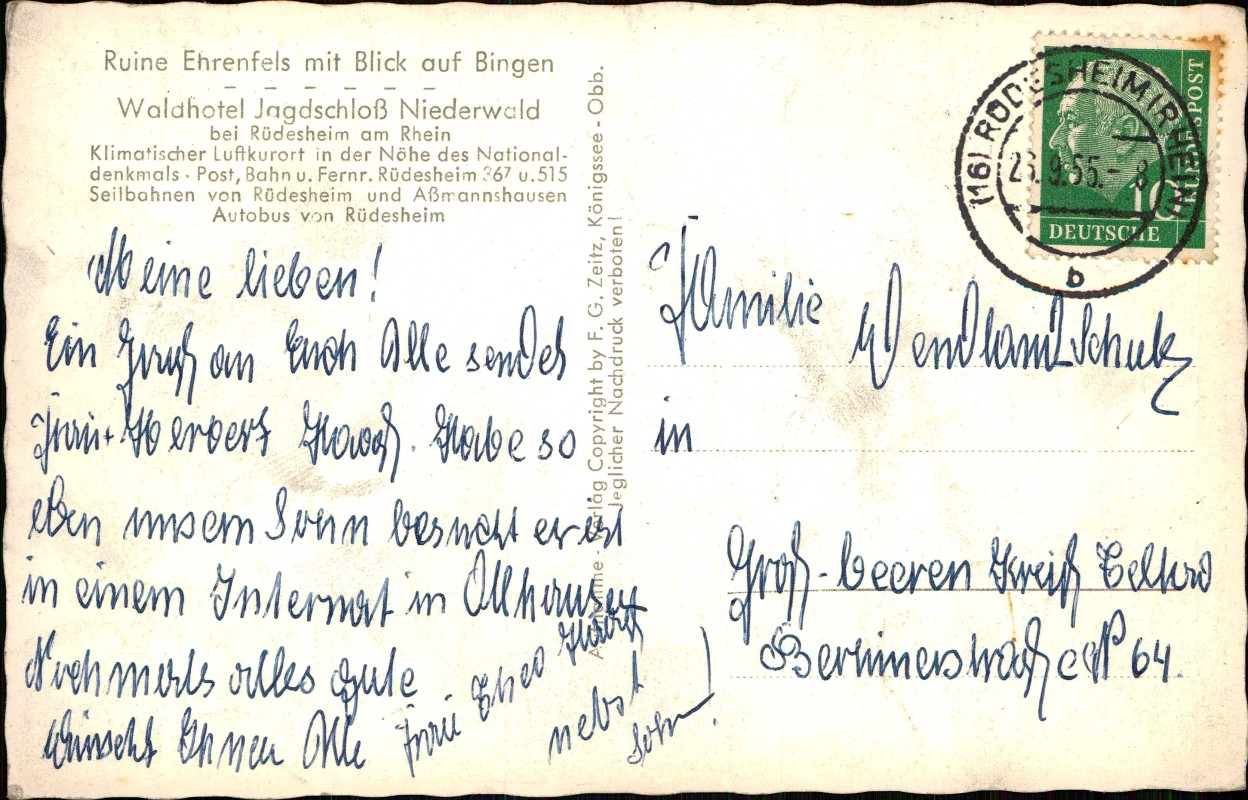 Ruine Ehrenfels mit Blick auf Bingen
Waldhotel Jagdschloß Niederwald
bei Rüdesheim am Rhein
Klimatischer Luftkurort in der Nähe des National-
denkmals · Post, Bahn u. Fernr. Rüdesheim 367 u. 515
Seilbahnen von Rüdesheim und Aßmannshausen
Autobus von Rüdesheim
Meine lieben!
Ein Gruß an Euch Alle sendet
Frau + Herbert Haas. Habe so
eben unsern Sohn besucht er ist
in einem Internat in
Nochmals alles gute
wünscht Ihnen Alle Frau Theo
nebst
Sohn!
Aufnahme - Verlag Copyright by F. G. Zeitz, Königssee - Obb.
Jeglicher Nachdruck verboten!
(16) RÜDESHEIM (RHEIN)
23.9.55.- 8
b
10
DEUTSCHE
BUNDESPOST
Familie
Wendland Schulz
in
Groß-beeren Kreiß Teltow
Berlinerstraße N° 64.